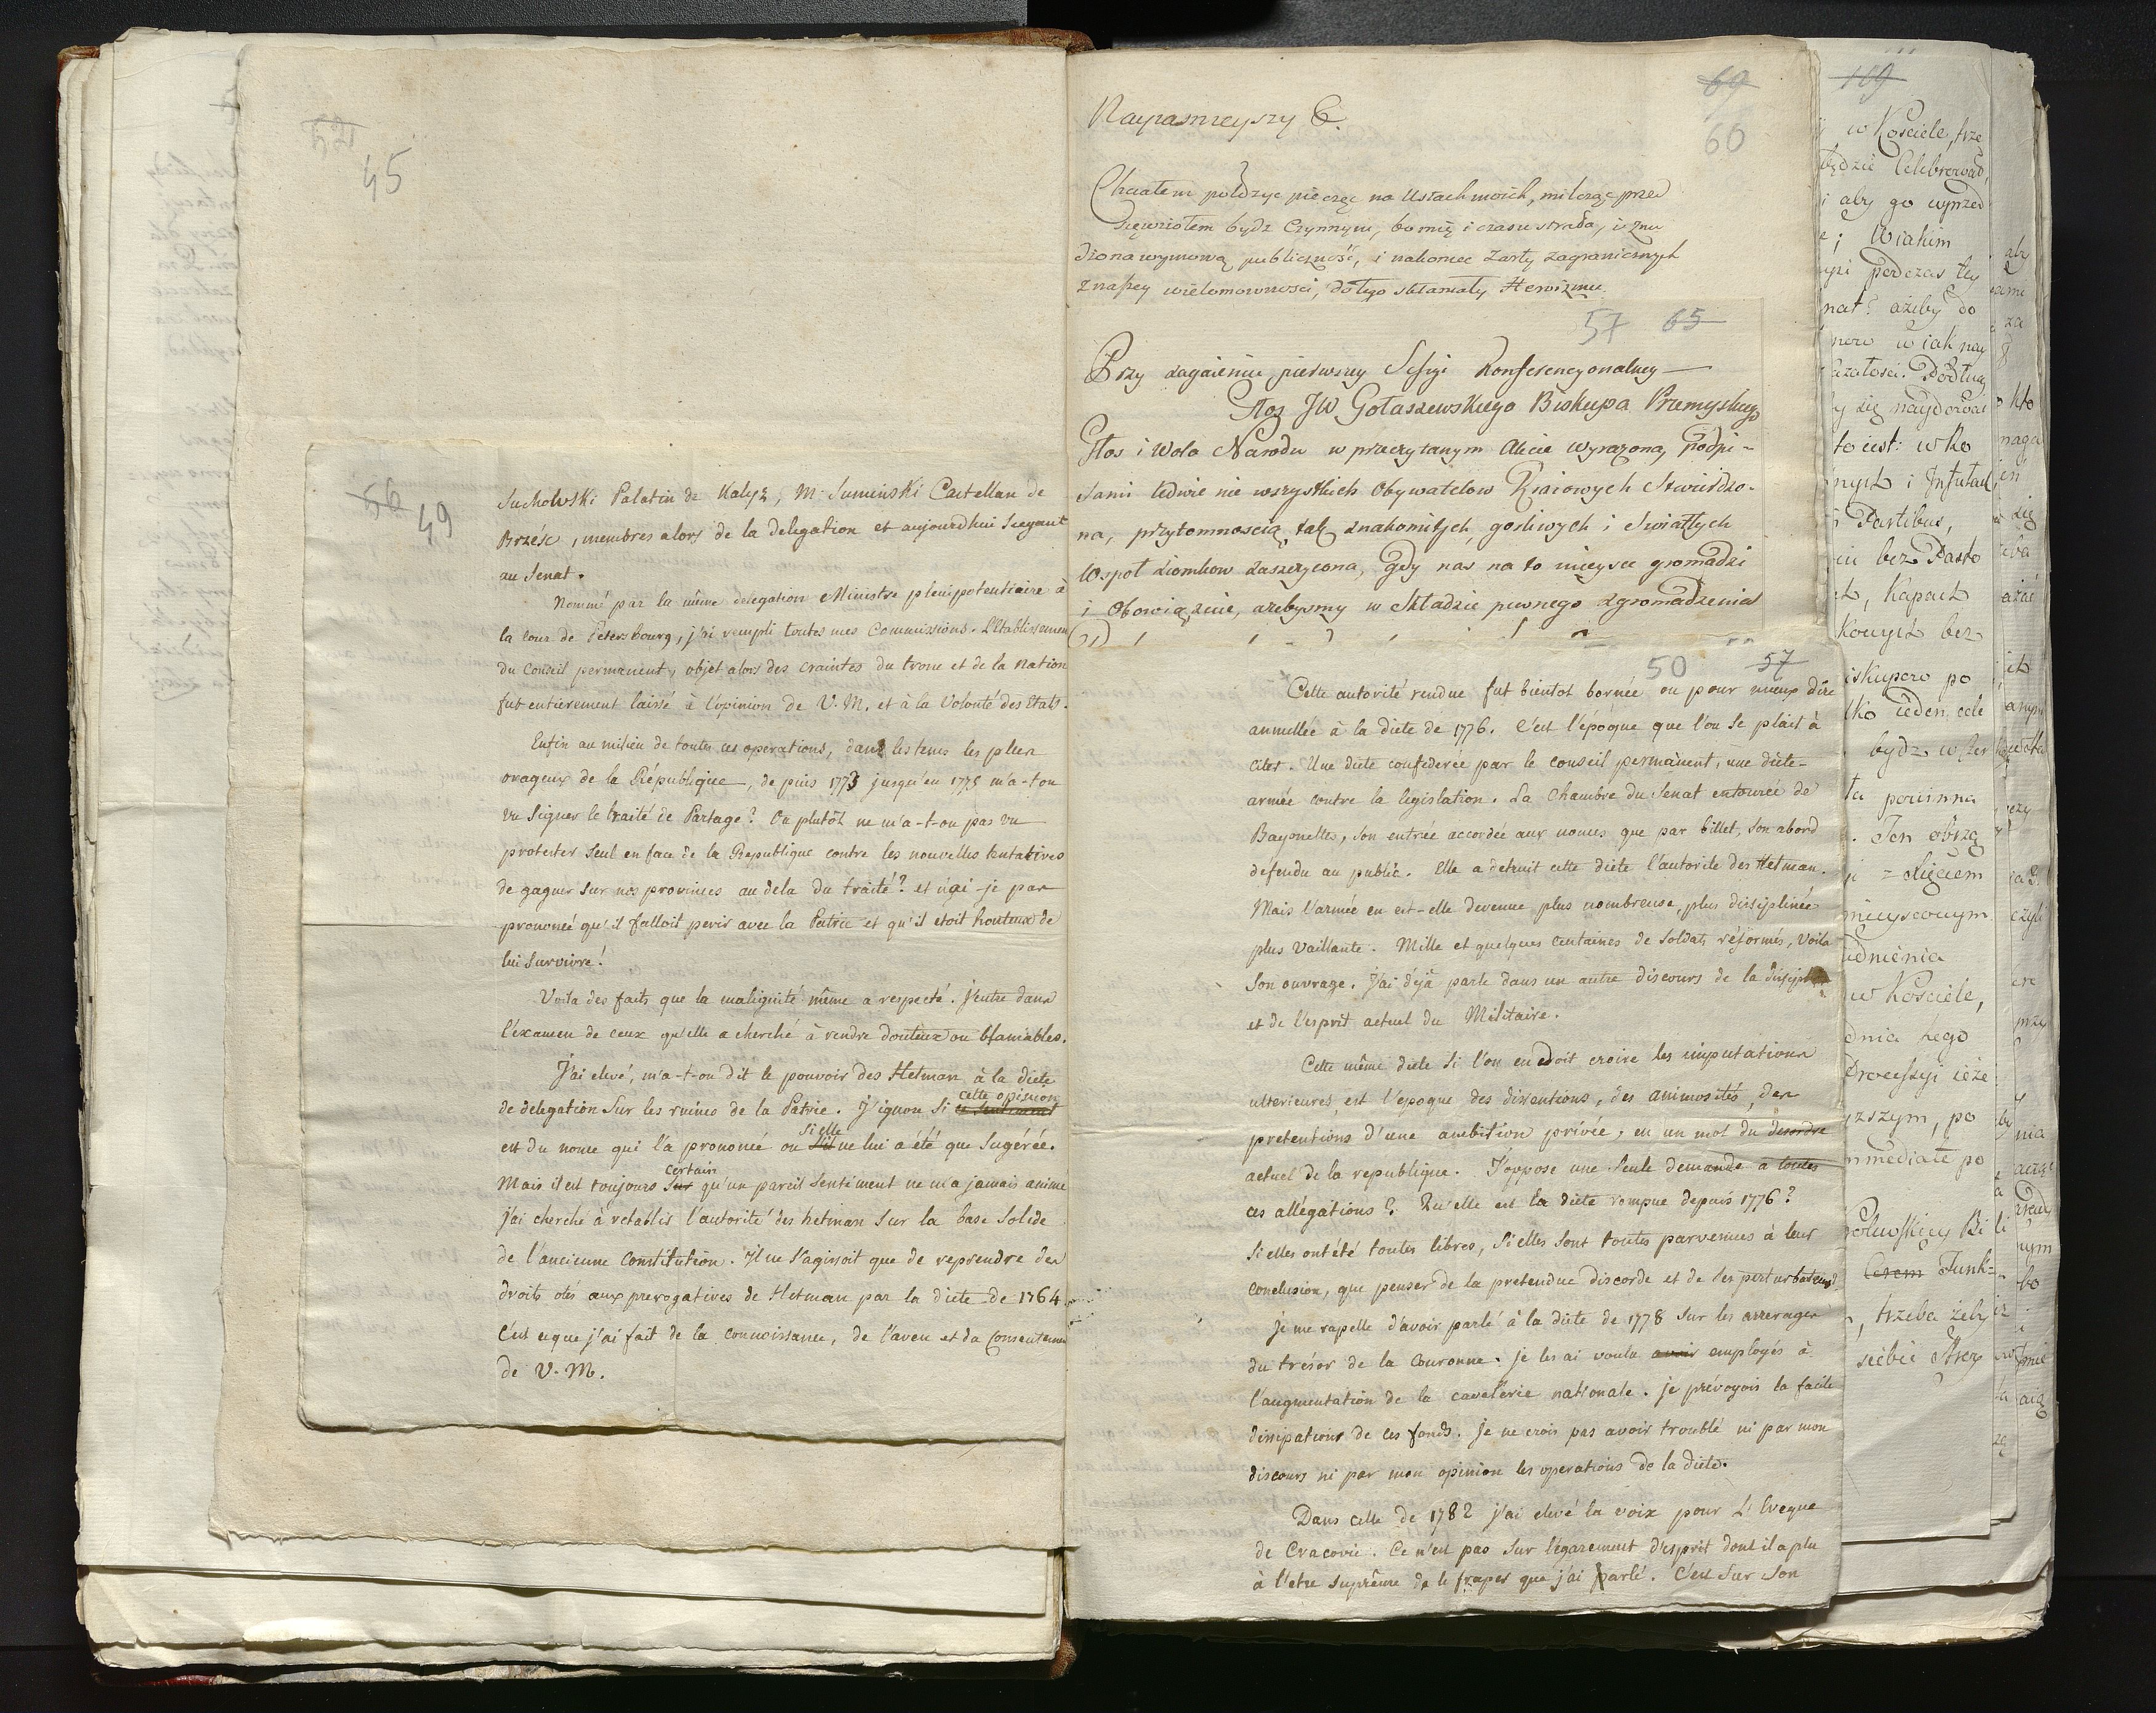 52
45
56 49
Sucholski Palatin de Kalyz, M. Suminski Castellan de
Brześc, membres alors de la delegation et aujourdhui siegant
au Senat.
Nommé par la même delegation Ministre plenipotentiaire à
la cour de Petersbourg, j'ai rempli toutes mes Commissions. L'Etablissemen
du Conseil permanent, objet alors des craintes du trone et de la nation
fut entierement laissé à l'opinion de V. M. et à la Volonté des Etats.
Enfin au milieu de toutes ces operations, dans les tems les plus
orageux de la République, de puis 1773 jusqu'en 1775 m'a-t-on
vu signer le traité de Partage? Ou plutôt ne m'a-t-on pas vu
protester seul en face de la Republique contre les nouvelles tentatives
de gagner sur nos provinces au dela du traité? et n'ai-je pas
prononcé qu'il falloit perir avec la Patrie et qu'il etoit honteux de
lui survivre!
Voila des faits que la malignité même a respecté. J'entre dans
l'éxamen de ceux qu'elle a cherché à rendre douteux ou blamables.
J'ai elevé, m'a-t-on dit le pouvoir des Hetman à la diete
cette opinion
de delegation sur les ruines de la Patrie. J'ignore si ce sentiment
si elle
est du nonce qui l'a prononcé ou s'il ne lui a été que sugérée.
certain
Mais il est toujours sur qu'un pareil sentiment ne m'a jamais animé
j'ai cherché à retablir l'autorité des hetman sur la base solide
de l'ancienne Constitution. Il ne s'agissoit que de reprendre des
droits otés aux prerogatives de Hetman par la diete de 1764
c'est ce que j'ai fait de la connoissance, de l'aveu et du Consenteme
de V. M.
69
60
Nayiasnieyszy
Chciałem położyc pieczęc na Ustach moich, milcząc przed
sięwziołem bydz Czynnym, bo mię i czasu strata, i znu
dzona wymową publicznosć, i nakoniec żarty zagranicznych
z naszey wielomownosci, do tego skłaniały Heroizmu.
57 65
Przy zagaieniu pierwszey Sessyi Konferencyonalney
Głos JW Gołaszewskiego Biskupa Przemyskiego
Głos i Wola Narodu w przeczytanym Akcie wyrażona, podpi-
sami ledwie nie wszystkich Obywatelow Kraiowych stwierdzo-
na, przytomnoscią tak znakomitych, gorliwych i Swiatłych
Wspoł ziomkow zaszczycona, gdy nas na to mieysce gromadzi
i Obowiązuie, ażebysmy w Składzie pewnego zgromadzenia
50 57
Cette autorité rendue fut bientot bornée ou pour mieux dire
annullée à la diete de 1776. C'est l'époque que l'on se plait à
citer. Une diete confederée par le conseil permanent, une diete-
armée contre la legislation. La Chambre du Senat entourée de
Bayonettes, son entrée accordée aux nonces que par billet, son abord
défendu au public. Elle a detruit cette diete l'autorité des Hetman.
Mais l'armée en est-elle devenue plus nombreuse, plus disciplinée
plus vaillante. Mille et quelques centaines de soldats réformés, voila
son ouvrage. J'ai déjà parlé dans un autre discours de la discipl
et de l'esprit actuel du Militaire.
Cette même diete si l'on en doit croire les imputations
ulterieures est l'epoque des dissentions, des animosités, des
pretentions d'une ambition privée, en un mot du desordre
actuel de la republique. J'oppose une seule demande a toutes
ces allégations? Qu'elle est la diete rompue depuis 1776?
Si elles ont été toutes libres, si elles sont toutes parvenues à leur
conclusion, que penser de la pretendue discorde et de ses perturbateurs?
Je me rapelle d'avoir parlé à la diete de 1778 sur les arrerages
du trésor de la couronne. je les ai voulu avoir employés à
l'augmentation de la cavalerie nationale. je prévoyois la facile
dissipations de ces fonds. Je ne crois pas avoir troublé ni par mon
discours ni par mon opinion les operations de la diete.
Dans celle de 1782 j'ai elevé la voix pour L'Eveque
de Cracovie. Ce n'est pas sur l'égarement d'esprit dont il a plu
à l'etre suprême de le fraper que j'ai parlé. C'est sur son
109
w Kosciele, trze
będzie Celebrował,
i aby go uprzed
Wiakim
podczas tey
nat? ażeby do
w iak nay
to iest: w Ko
i Infułach
Partibus,
bez Pasto
, Kapach
bez
iskupow po
lko ieden, cele
bydz w Ker
ta powinna
mieyscowym
w Kosciele,
dnia tego
Processyi ieże
po
mmediate po
Bi
Funk=
, trzeba żeby
siebie
aby
za
kto
naga
się